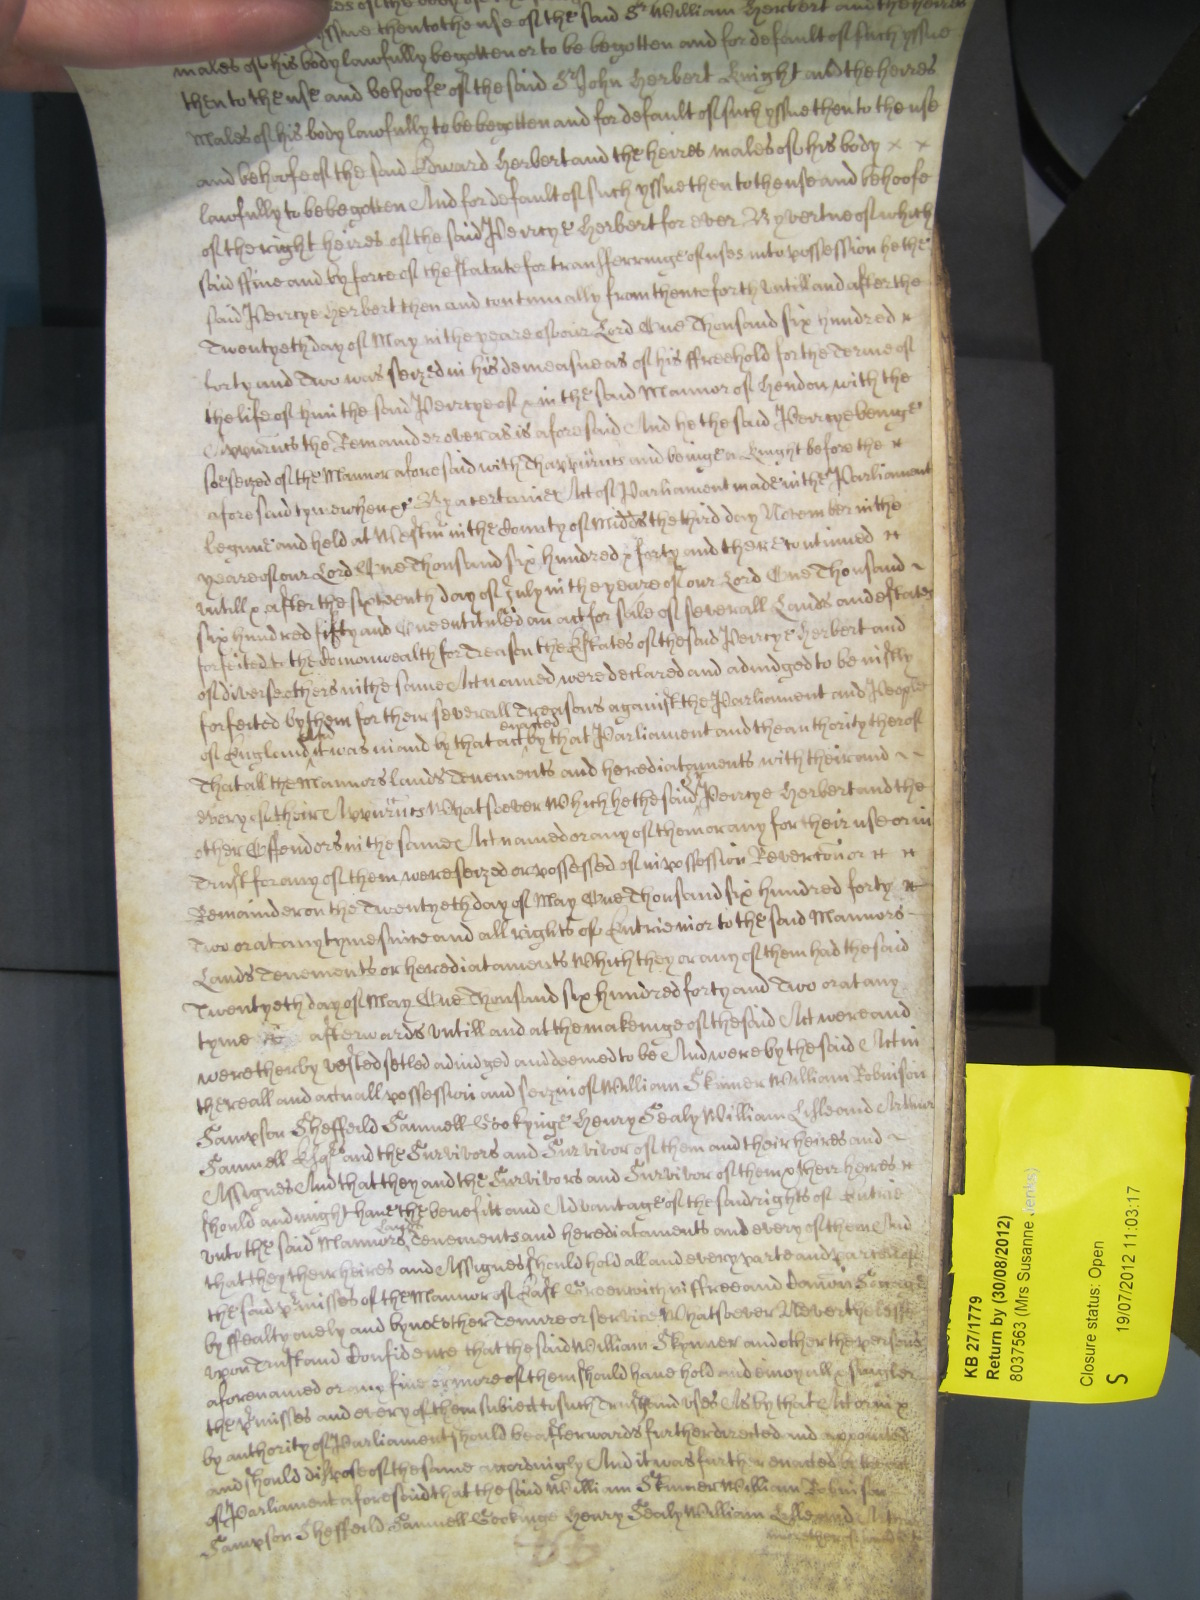 of the body of
yssue then to the use of the said Sr William Herbert and the heires
males of his body lawfully begotten or to be begotten and for default of such yssue
then to the use and behoofe of the said Sr John Herbert Knight and the heires
Males of his body lawfully to be begotten and for default of such yssue then to the use
and behoofe of the said Edward Herbert and the heires males of his body x x
lawfully to be begotten And for default of such yssue then to the use and behoofe
of the right heires of the said Peircye Herbert for ever By vertue of which
said ffine and by force of the statute for transferringe of uses into possession he the
said Peircye Herbert then and continually from thenceforth untill and after the
Twentyeth day of May in the yeare of our Lord One Thousand six hundred
forty and Two was seized in his demeasne as of his ffreehold for the Terme of
the life of him the said Peircye of x in the said Mannor of Hendon with the
Appurtts the Remainder over as is aforesaid And he the said Peircye beinge
soe seized of the Mannor aforesaid with Thappurtts and beinge a Knight before the
aforesaid tyme when &c By a certaine Act of Parliament made in the Parliament
begunn and held at Westm in the County of Midds the third day November in the
yeare of our Lord One Thousand six hundred x forty and there continued
untill x after the sixteenth day of July in the yeare of our Lord One Thousand
six hundred fifty and One entituled an act for sale of severall Lands and estates
forfeited to the Comonwealth for Treason the Estates of the said Peircye Herbert and
of diverse others in the same Act named were declared and adiudged to be iustly
forfeited by them for their severall Treasons against the Parliament and People
of England and it was in and by that act enacted by that Parliament and the authority therof
That all the Mannors lands Tenements and hereditaments with their and
every of their Appurtts Whatsoever Which he the said Sr Peircye Herbert and the
other Offendors in the same Act named or any of them or any for their use or in
Trust for any of them were seized or possessed of in possession Revercon or
Remainder on the Twentyeth day of May One Thousand six hundred forty
Two or at any tyme since and all rights of Entrie in or to the said Mannors
Lands Tenements or hereditaments Which they or any of them had the said
Twentyeth day of May One Thousand six hundred forty and Two or at any
tyme afterwards untill and at the makeinge of the said Act were and
were therby vested setled adiudged and deemed to be And were by the said Act in
the reall and actuall possession and seizin of William Skinner William Robinson
Sampson Sheffeild Samuell Gookyinge Henry Sealy William Lisle and Arthur
Samuell Esqrs and the Survivors and Survivor of them and their heires and
Assignes And that they and the Survivors and Survivor of them x their heires
should and might have the benefitt and Advantage of the said rights of Entrie
unto the said Mannors Lands Tenements and hereditaments and every of them And
that they their heires and Assignes should hold all and every parte and parcell of
the said pmisses of the Mannor of East Greenwich in ffree and Comon Soccage
by ffealty onely and by noe other Tenure or service Whatsoever Neverthelesse
upon Trust and Confidence that the said William Skynner and other the persons
aforenamed or any five or more of them should have hold and enioy all x singler
the pmisses and every of them subiect to such Trusts and uses As by that Act or in x
by authority of Parliament should be afterwards further directed and appointed
and should dispose of the same accordingly And it was further enacted by
of Parliament aforesaid that the said William Skinner William Robinson
Sampson Sheffeild Samuell Gookinge Henry Sealy William Lisle and Arthur
KB 27/1779
Return by (30/08/2012)
8037563 (Mrs Susanne Jenks)
Closure status: Open
S 19/07/2012 11:03:17